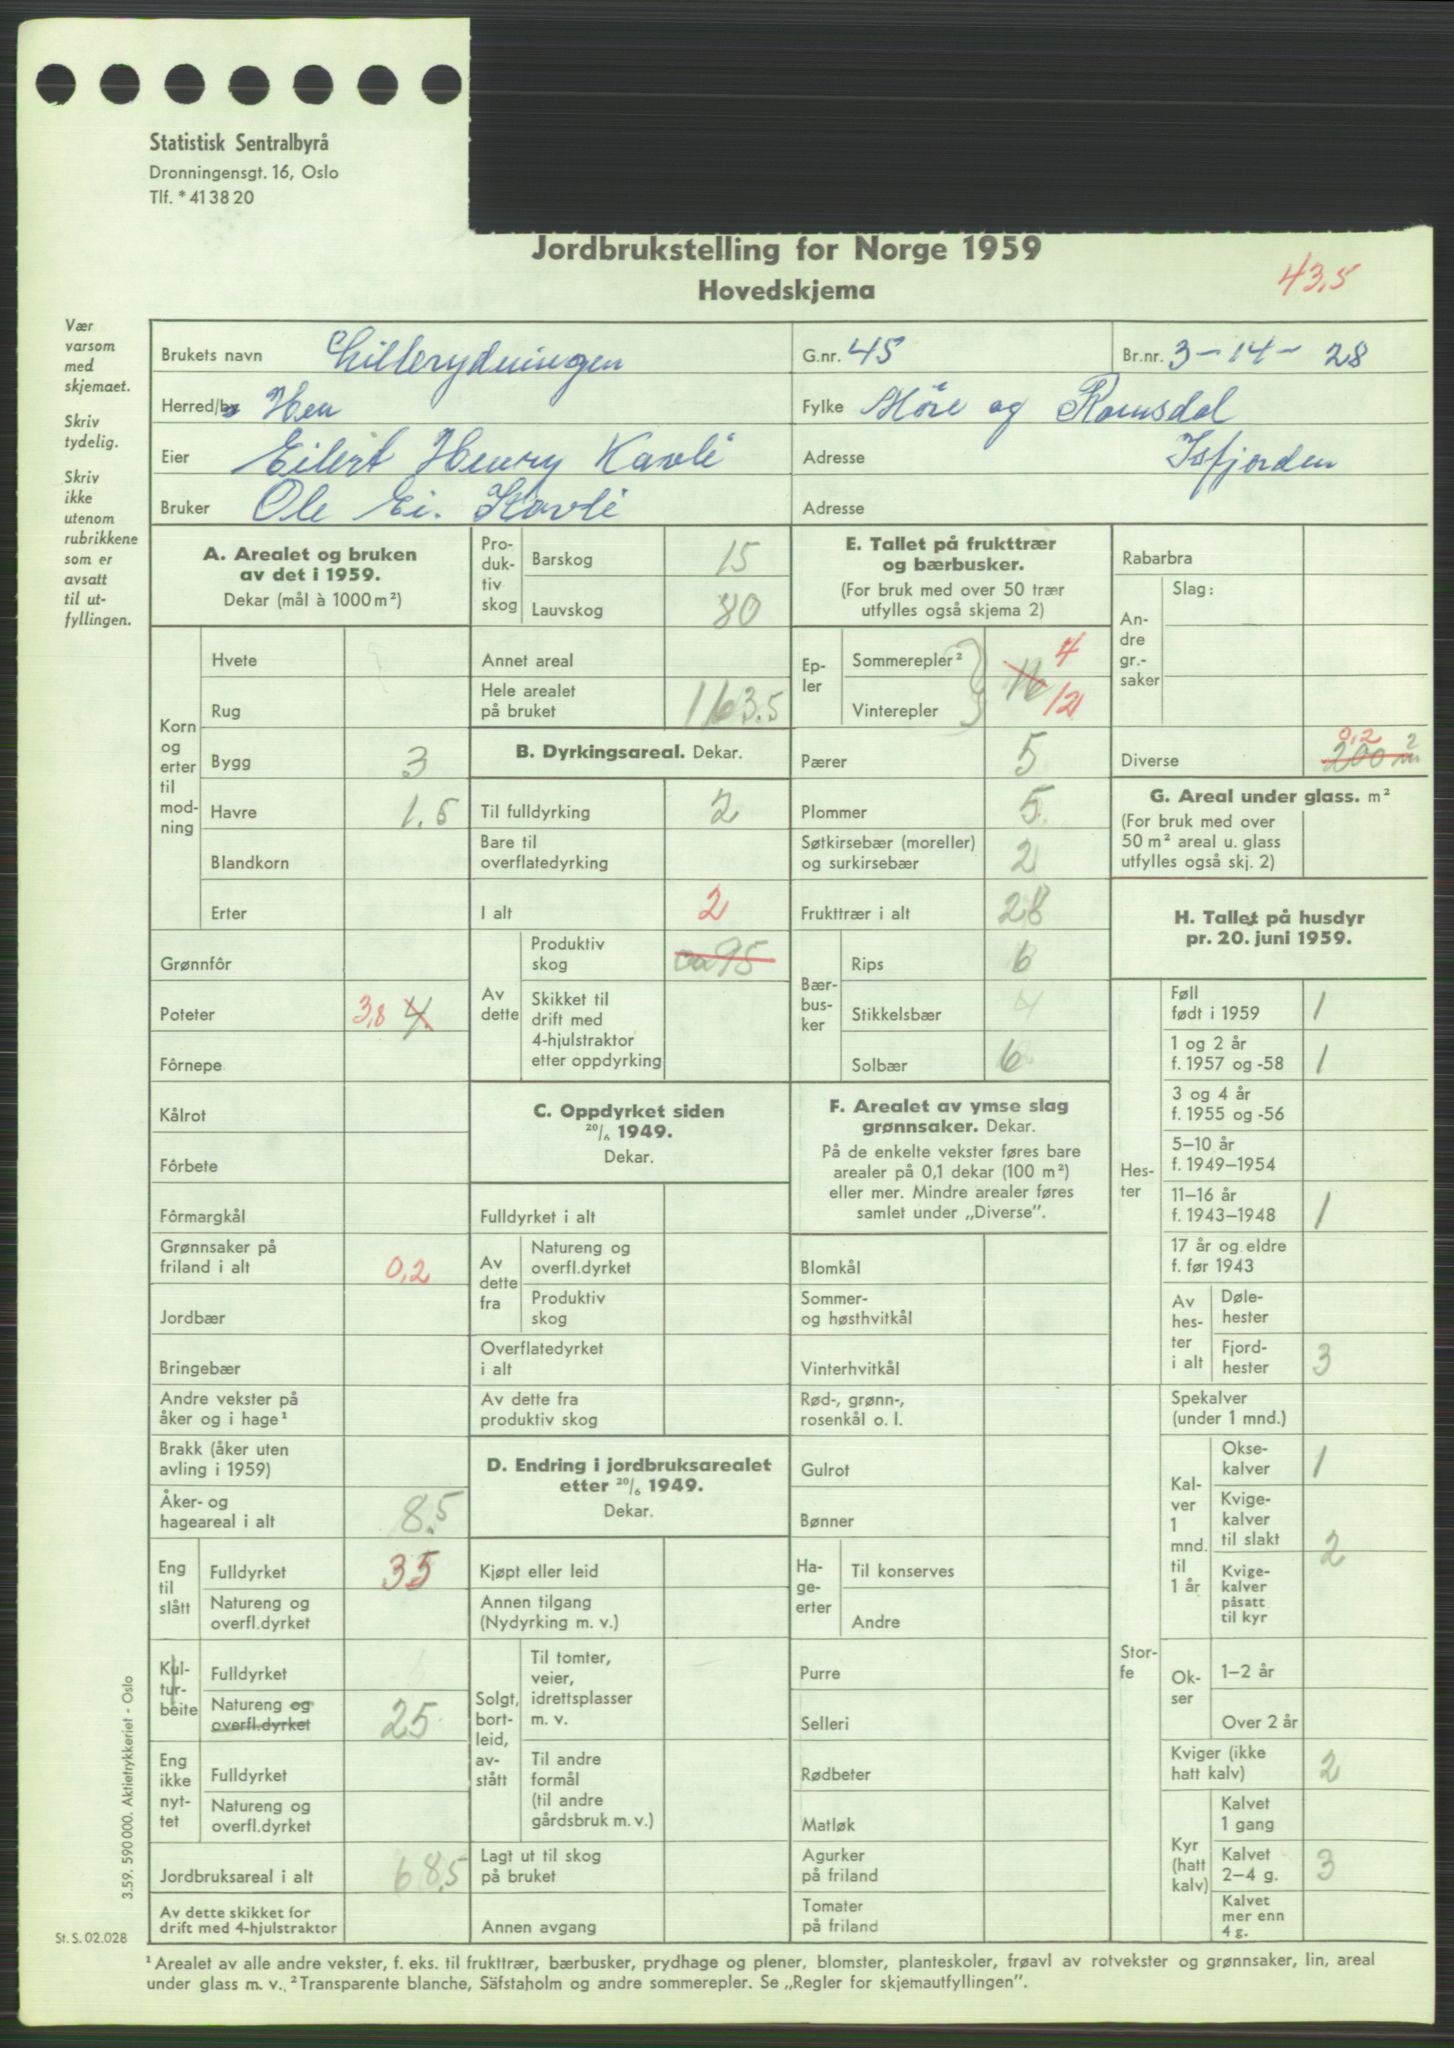 Statistisk Sentralbyrå
Dronningensgt. 16, Oslo
Tlf. * 41 38 20
Jordbrukstelling for Norge 1959
Hovedskjema
43,5
Vær
varsom
med
skjemaet.
Skriv
tydelig.
Skriv
ikke
utenom
rubrikkene
som er
avsatt
til ut-
fyllingen.
Brukets navn Lillerydningen G.nr. 45 Br.nr. 3-14-28
Herred/by Hen Fylke Møre og Romsdal
Eier Eilert Henry Kavli Adresse Isfjorden
Bruker Ole Ei. Kavli Adresse
A. Arealet og bruken
av det i 1959.
Dekar (mål à 1000 m²)
Korn
og
erter
til
mod-
ning
Hvete
Rug
Bygg 3
Havre 1.5
Blandkorn
Erter
Grønnfôr
Poteter 3,8 4
Fôrnepe
Kålrot
Fôrbete
Fôrmargkål
Grønnsaker på
friland i alt 0,2
Jordbær
Bringebær
Andre vekster på
åker og i hage¹
Brakk (åker uten
avling i 1959)
Åker- og
hageareal i alt 8,5
Eng
til
slått
Fulldyrket 35
Natureng og
overfl.dyrket
Kul-
tur-
beite
Fulldyrket
Natureng og
overfl.dyrket 25
Eng
ikke
nyt-
tet
Fulldyrket
Natureng og
overfl.dyrket
Jordbruksareal i alt 68,5
Av dette skikket for
drift med 4-hjulstraktor
Pro-
duk-
tiv
skog
Barskog 15
Lauvskog 80
Annet areal
Hele arealet
på bruket 163.5
B. Dyrkingsareal. Dekar.
Til fulldyrking 2
Bare til
overflatedyrking
I alt 2
Av
dette
Produktiv
skog ca 95
Skikket til
drift med
4-hjulstraktor
etter oppdyrking
C. Oppdyrket siden
20/6 1949.
Dekar.
Fulldyrket i alt
Av
dette
fra
Natureng og
overfl.dyrket
Produktiv
skog
Overflatedyrket
i alt
Av dette fra
produktiv skog
D. Endring i jordbruksarealet
etter 20/6 1949.
Dekar.
Kjøpt eller leid
Annen tilgang
(Nydyrking m. v.)
Solgt,
bort-
leid,
av-
stått
Til tomter,
veier,
idrettsplasser
m. v.
Til andre
formål
(til andre
gårdsbruk m. v.)
Lagt ut til skog
på bruket
Annen avgang
E. Tallet på frukttrær
og bærbusker.
(For bruk med over 50 trær
utfylles også skjema 2)
Ep-
ler
Sommerepler² 4
16
Vinterepler 12
Pærer 5
Plommer 5
Søtkirsebær (moreller)
og surkirsebær 2
Frukttrær i alt 28
Bær-
bus-
ker
Rips 6
Stikkelsbær 4
Solbær 6
F. Arealet av ymse slag
grønnsaker. Dekar.
På de enkelte vekster føres bare
arealer på 0,1 dekar (100 m²)
eller mer. Mindre arealer føres
samlet under „Diverse”.
Blomkål
Sommer-
og høsthvitkål
Vinterhvitkål
Rød-, grønn-,
rosenkål o. l.
Gulrot
Bønner
Ha-
ge-
erter
Til konserves
Andre
Purre
Selleri
Rødbeter
Matløk
Agurker
på friland
Tomater
på friland
Rabarbra
An-
dre
gr.-
saker
Slag:
Diverse 0,2 200 m²
G. Areal under glass. m²
(For bruk med over
50 m² areal u. glass
utfylles også skj. 2)
H. Tallet på husdyr
pr. 20. juni 1959.
Hes-
ter
Føll
født i 1959 1
1 og 2 år
f. 1957 og -58 1
3 og 4 år
f. 1955 og -56
5–10 år
f. 1949–1954
11–16 år
f. 1943–1948 1
17 år og eldre
f. før 1943
Av
hes-
ter
i alt
Døle-
hester
Fjord-
hester 3
Stor-
fe
Spekalver
(under 1 mnd.)
Kal-
ver
1
mnd.
til
1 år
Okse-
kalver 1
Kvige-
kalver
til slakt 2
Kvige-
kalver
påsatt
til kyr
Ok-
ser
1–2 år
Over 2 år
Kviger (ikke
hatt kalv) 2
Kyr
(hatt
kalv)
Kalvet
1 gang
Kalvet
2–4 g. 3
Kalvet
mer enn
4 g.
3.59. 590 000. Aktietrykkeriet - Oslo
St. S. 02.028
¹ Arealet av alle andre vekster, f. eks. til frukttrær, bærbusker, prydhage og plener, blomster, planteskoler, frøavl av rotvekster og grønnsaker, lin, areal
under glass m. v. ² Transparente blanche, Säfstaholm og andre sommerepler. Se „Regler for skjemautfyllingen”.